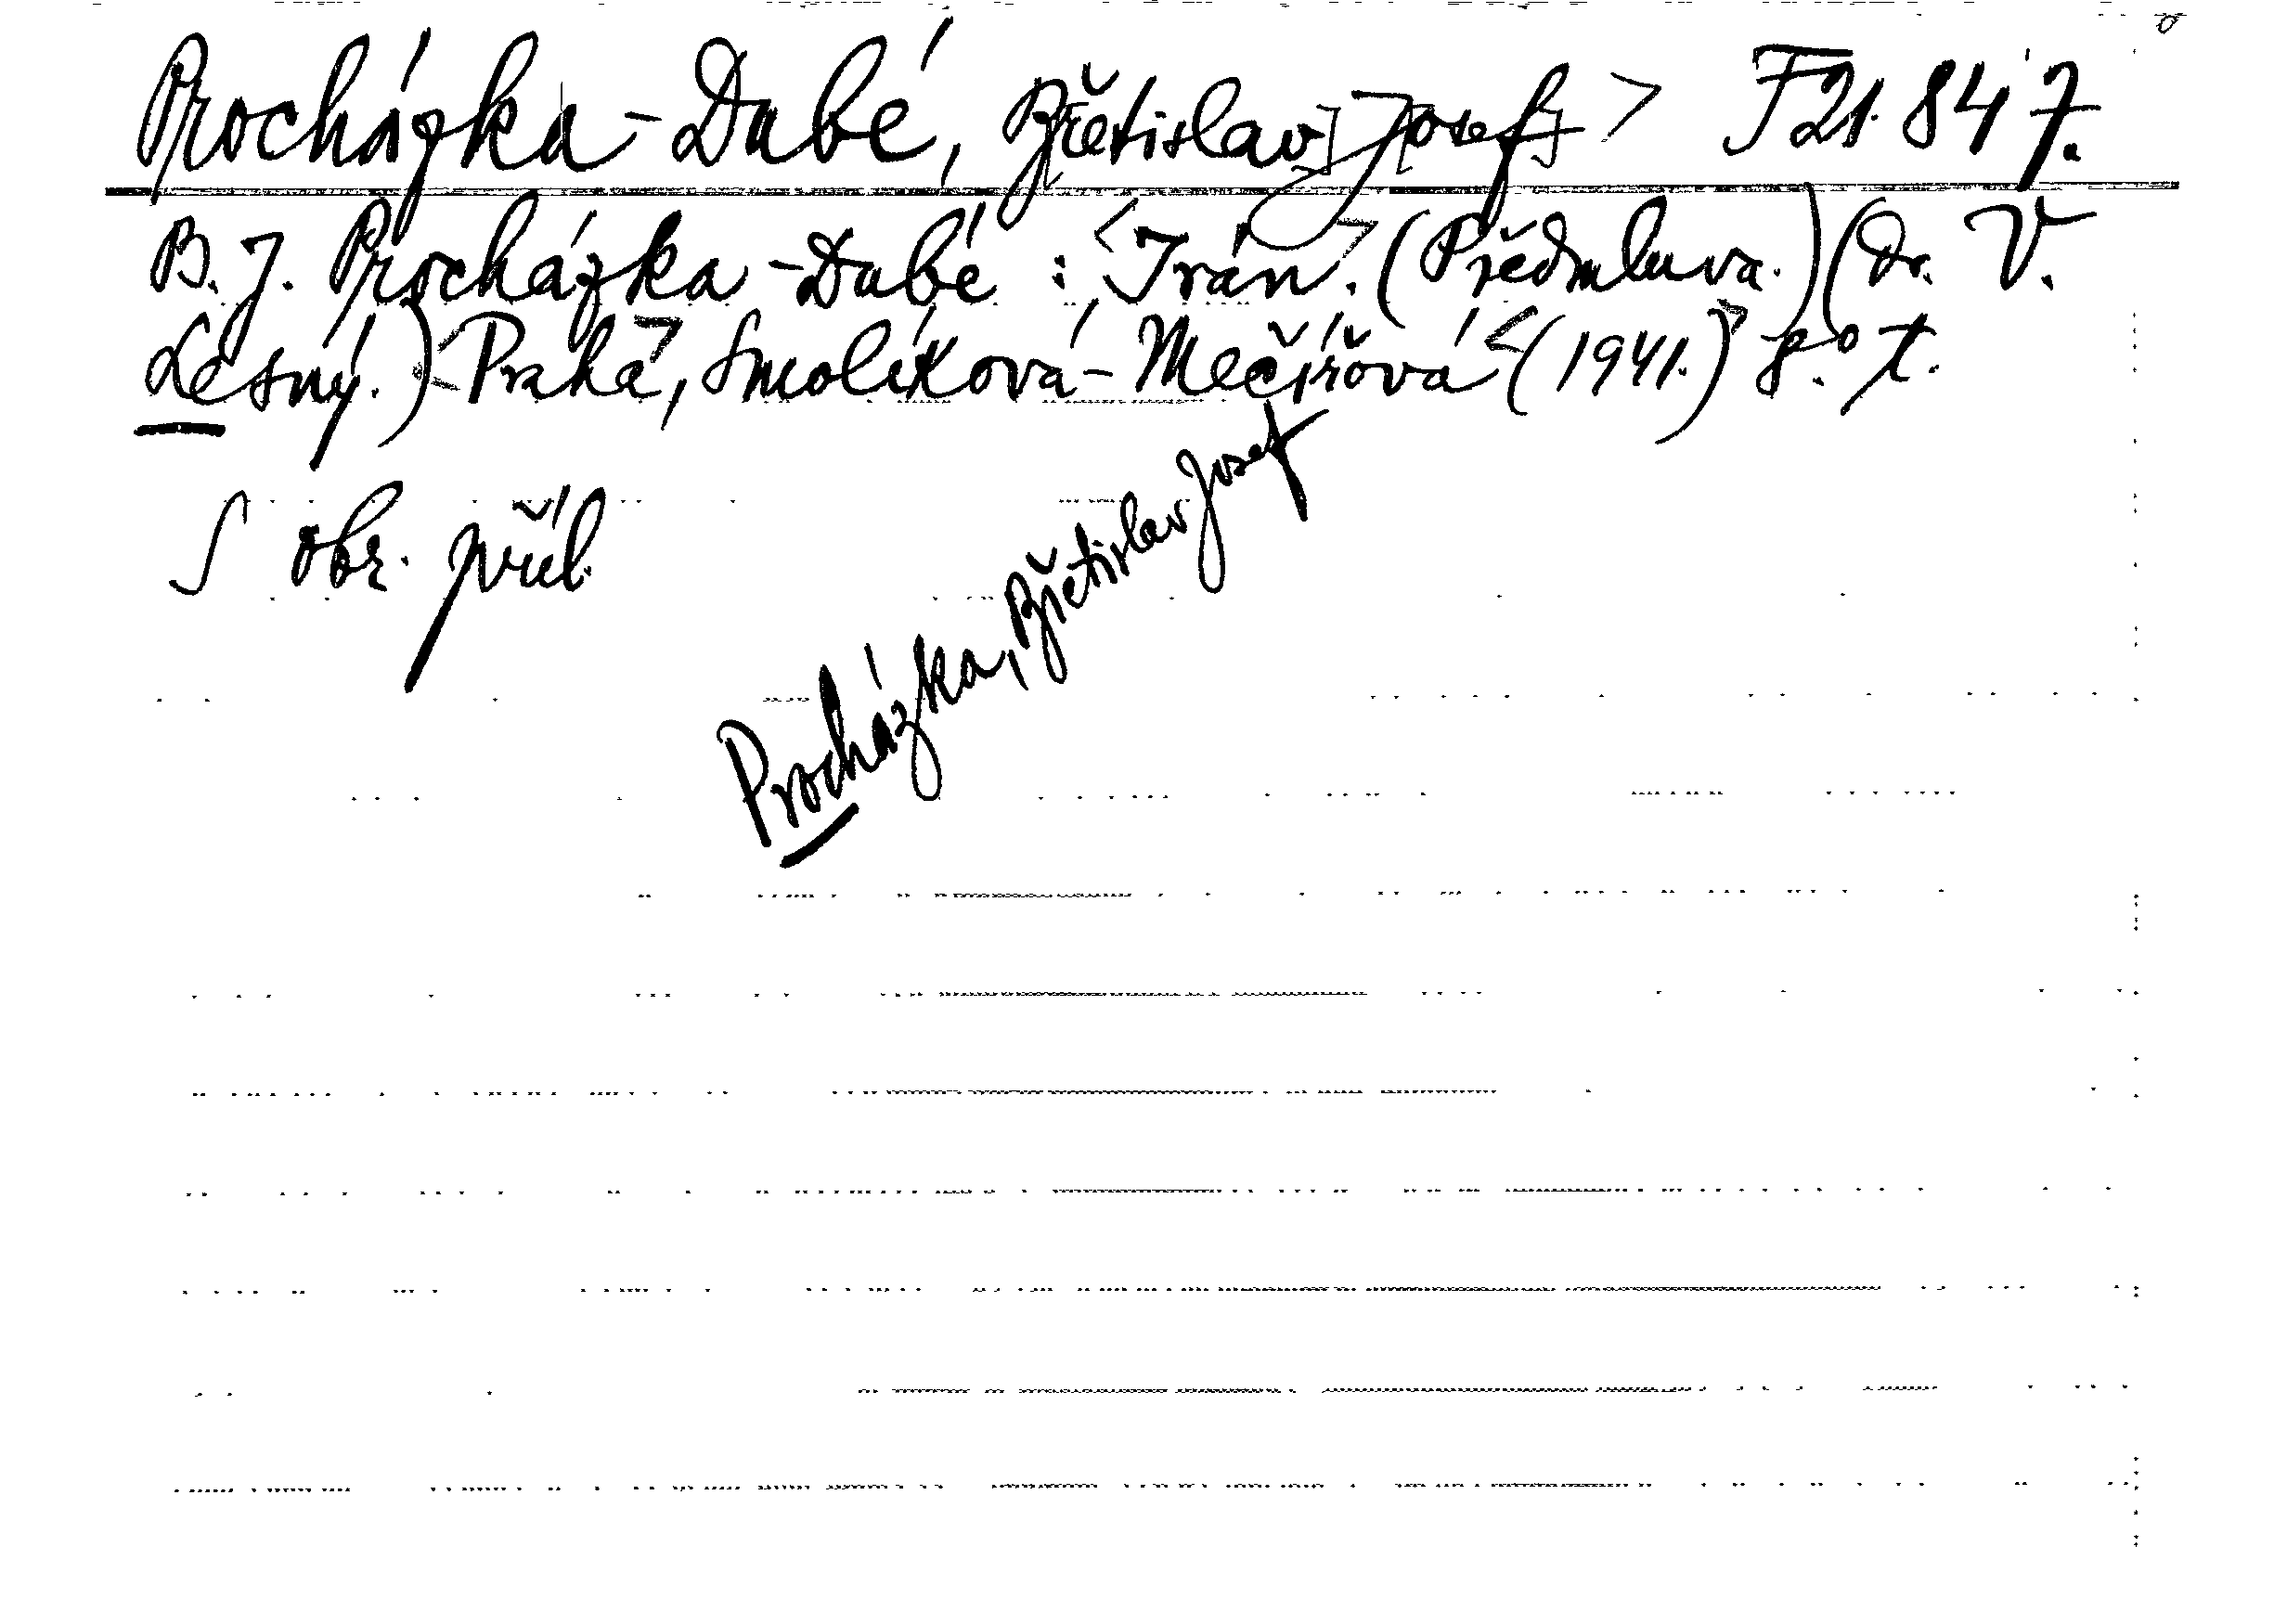 Procházka-Dubé, Břetislav] [Josef] > F 21.847.
B. J. Procházka-Dubé : <Írán.> (Předmluva.) (Dr. V.
Lesný.) <Praha>, Smolíková-Mečířová <(1941.)> 8.° t.
S obr. příl.
Procházka, Břetislav Josef